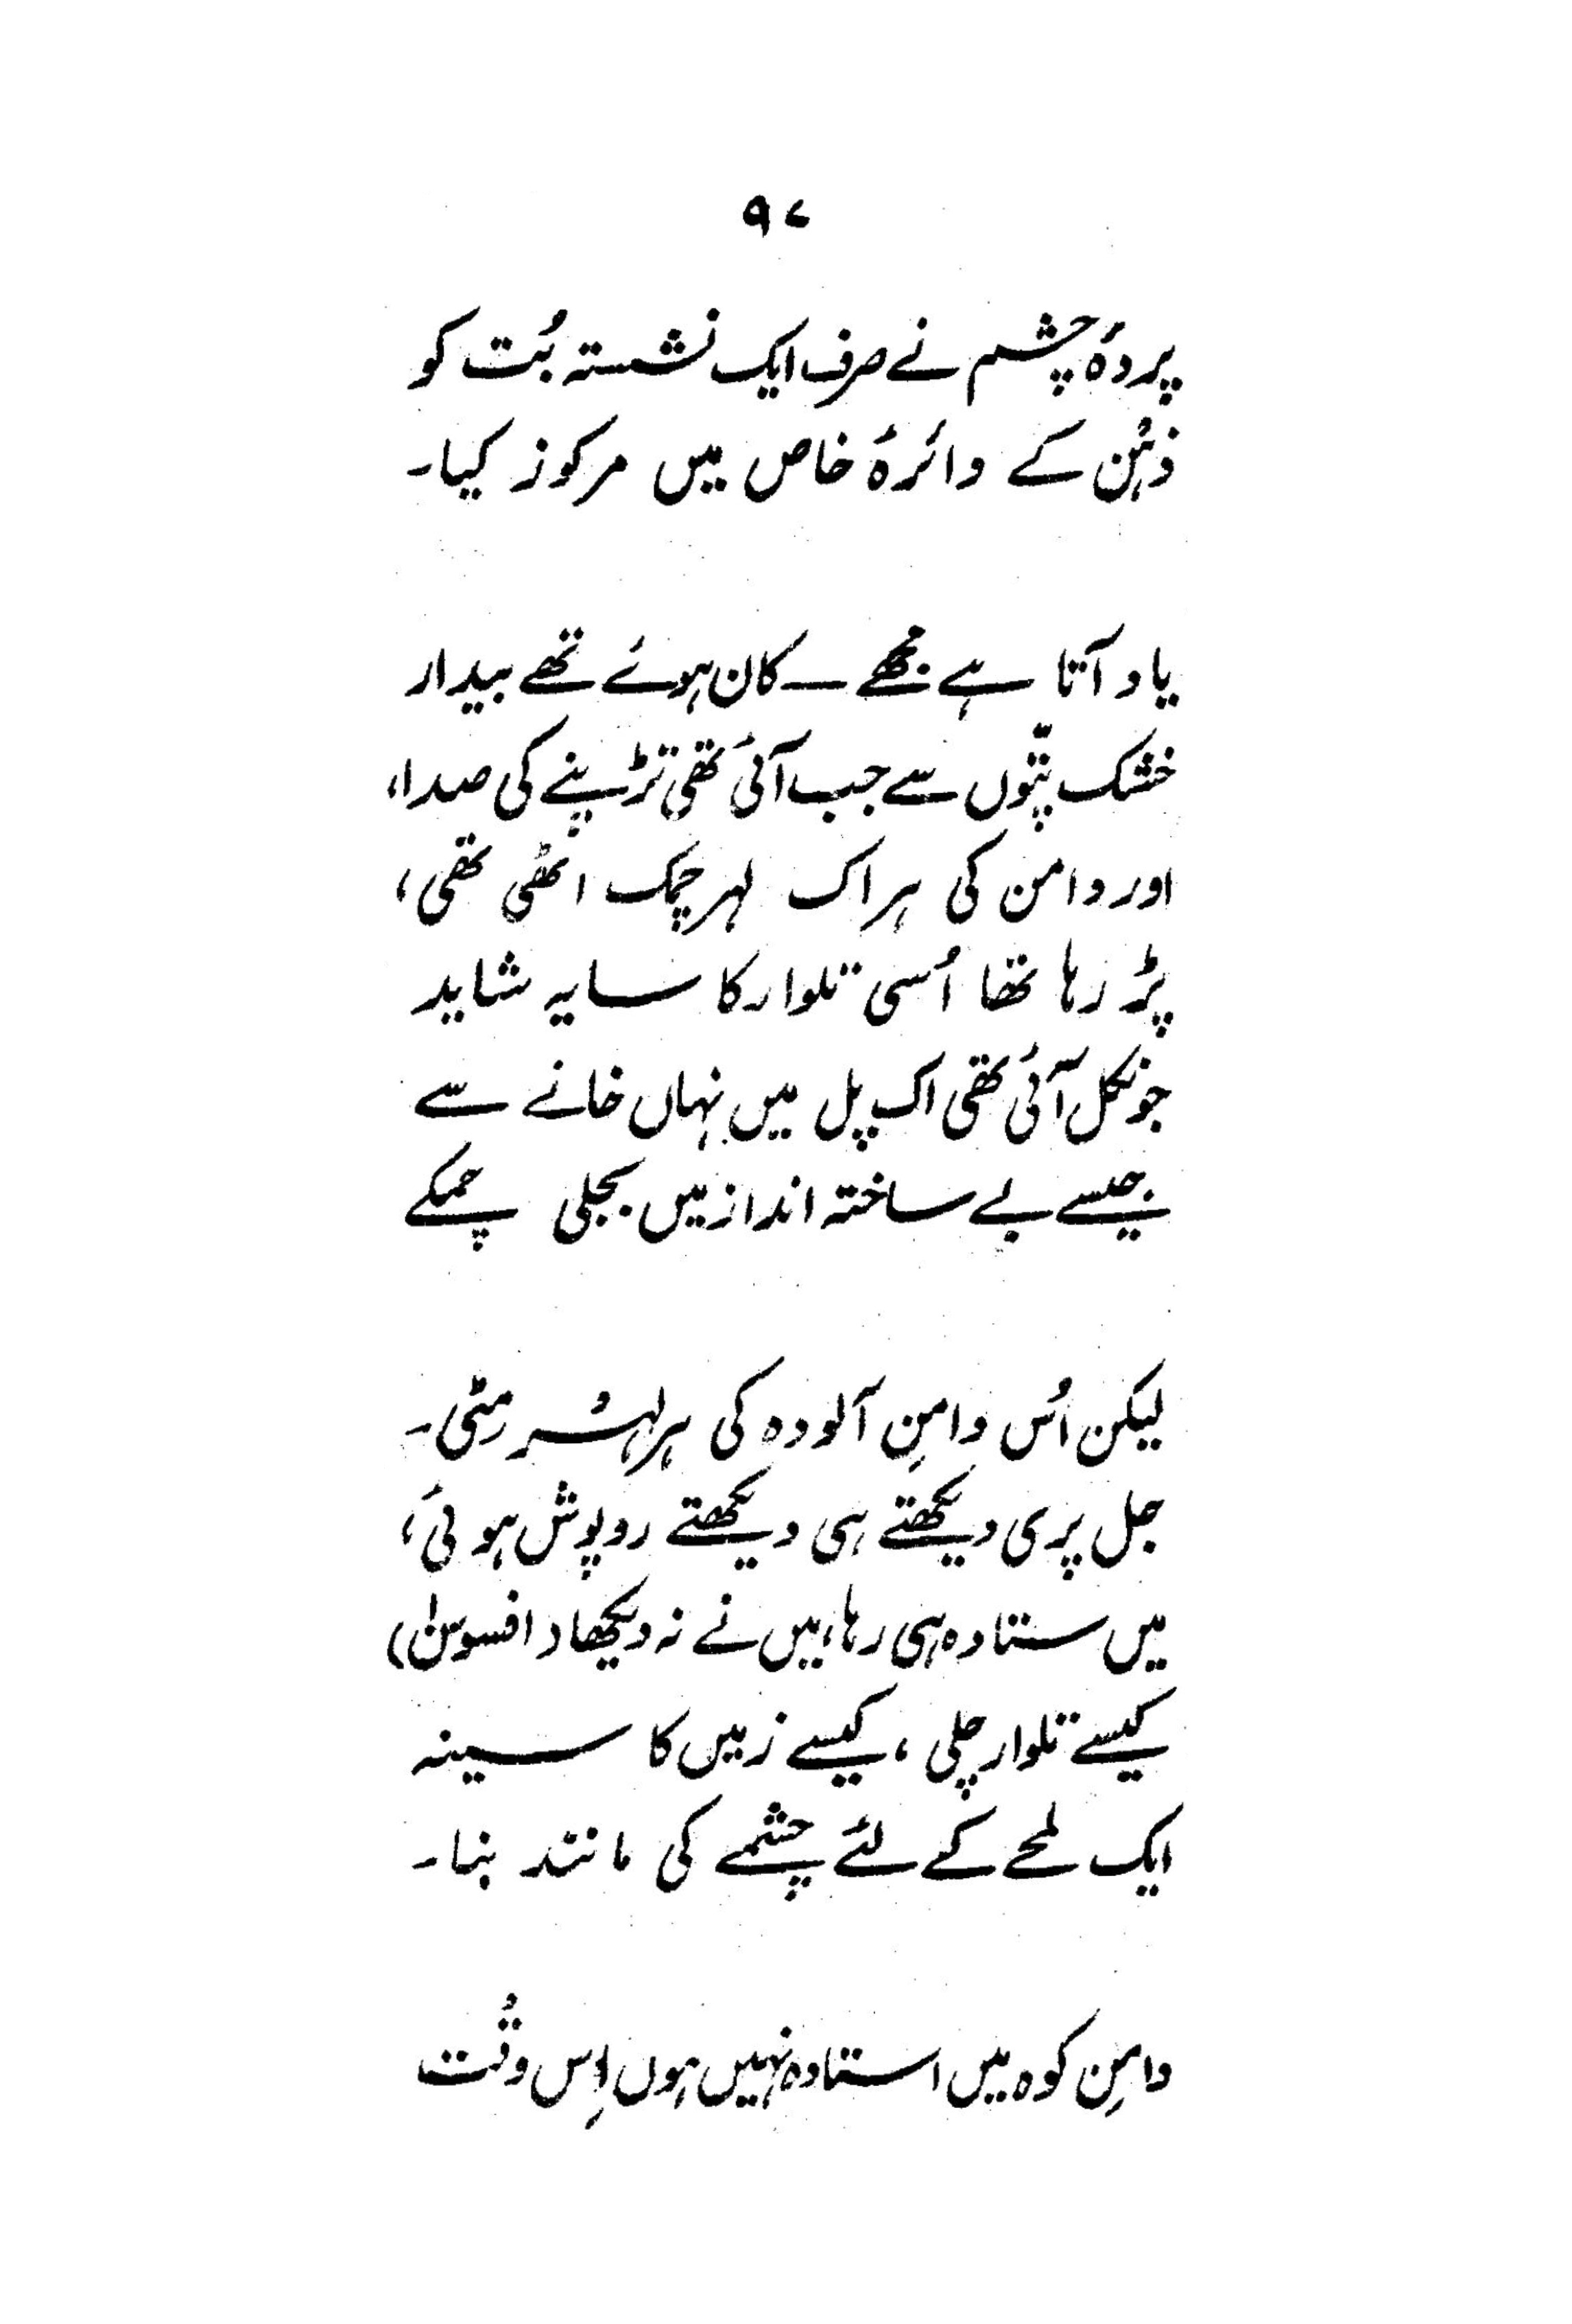 ۹۷
پردۂ چشم نے صرف ایک نشستہ بُت کو
ذہن کے دائرۂ خاص میں مرکوز کیا۔
یاد آتا ہے مجھے — کان ہوئے تھے بیدار
خشک پتّوں سے جب آئی تھی تڑپنے کی صدا،
اور دامن کی ہر اک لہر چمک اٹھی تھی،
پڑ رہا تھا اُسی تلوار کا سایہ شاید
جو نکل آئی تھی اک پل میں نہاں خانے سے
جیسے بے ساختہ انداز میں بجلی چمکے
لیکن اُس دامنِ آلودہ کی ہر لہر مٹی۔
جل پری دیکھتے ہی دیکھتے روپوش ہوئی،
میں ستادہ ہی رہا، میں نے نہ دیکھا (افسوس!)
کیسے تلوار چلی، کیسے زمیں کا سینہ
ایک لمحے کے لئے چشمے کی مانند بنا۔
دامنِ کوہ میں استادہ نہیں ہوں اِس وقت